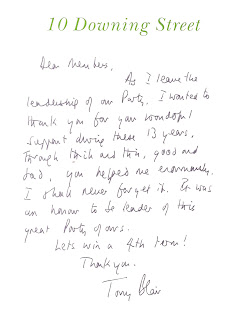 10 Downing Street
Dear Members,
As I leave the
leadership of our Party. I wanted to
thank you for your wonderful
support during these 13 years,
through thick and thin, good and
bad, you helped me enormously.
I shall never forget it. It was
an honour to be leader of this
great Party of ours.
Lets win a 4th term!
Thank you.
Tony Blair